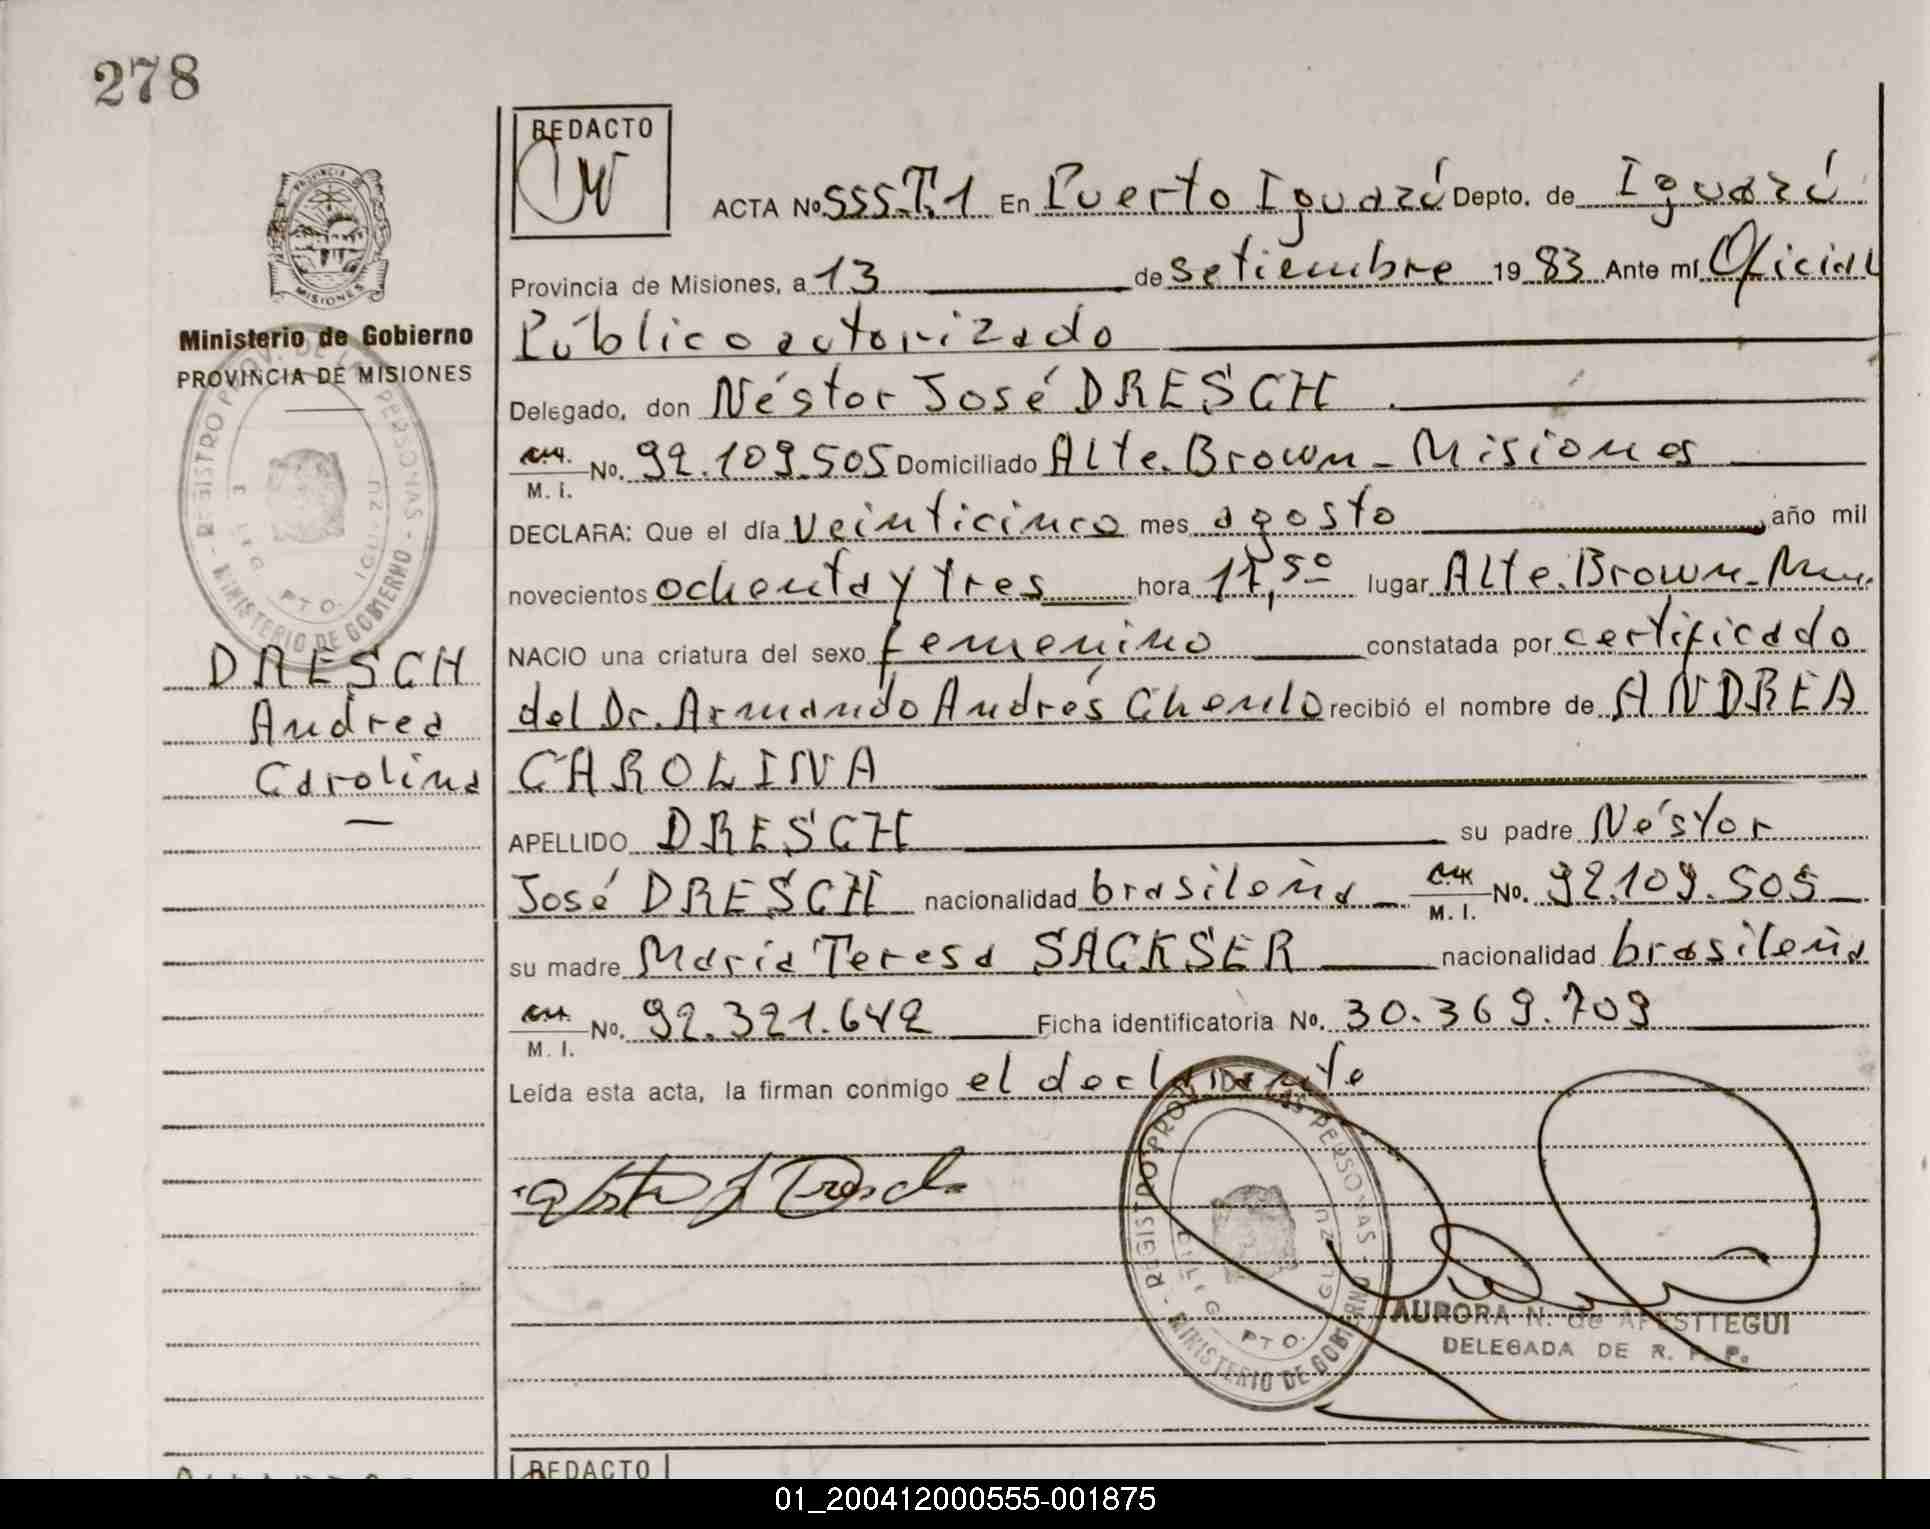 278
REDACTO
PROVINCIA DE
MISIONES
Ministerio de Gobierno
PROVINCIA DE MISIONES
REGISTRO PROV. DE LAS PERSONAS - MINISTERIO DE GOBIERNO -
PTO. IGUAZU
DRESCH
Andrea
Carolina
ACTA No 555.T.1 En Puerto Iguazú Depto. de Iguazú
Provincia de Misiones, a 13 de setiembre 1983 Ante mí Oficial
Público autorizado
Delegado, don Néstor José DRESCH
M. I. No. 92.109.505 Domiciliado Alte. Brown - Misiones
DECLARA: Que el día veinticinco mes agosto, año mil
novecientos ochenta y tres hora 11,50 lugar Alte. Brown - Mnes.
NACIO una criatura del sexo femenino constatada por certificado
del Dr. Armando Andrés recibió el nombre de ANDREA
CAROLINA
APELLIDO DRESCH su padre Néstor
José DRESCH nacionalidad brasileña M. I. No. 92.109.505
su madre María Teresa SACKSER nacionalidad brasileña
M. I. No. 92.321.642 Ficha identificatoria No. 30.369.709
Leída esta acta, la firman conmigo el declarante
REGISTRO PROV. DE LAS PERSONAS - MINISTERIO DE GOBIERNO
PTO. IGUAZU
AURORA N. de APESTTEGUI
DELEGADA DE R. P. P.
REDACTO
01_200412000555-001875